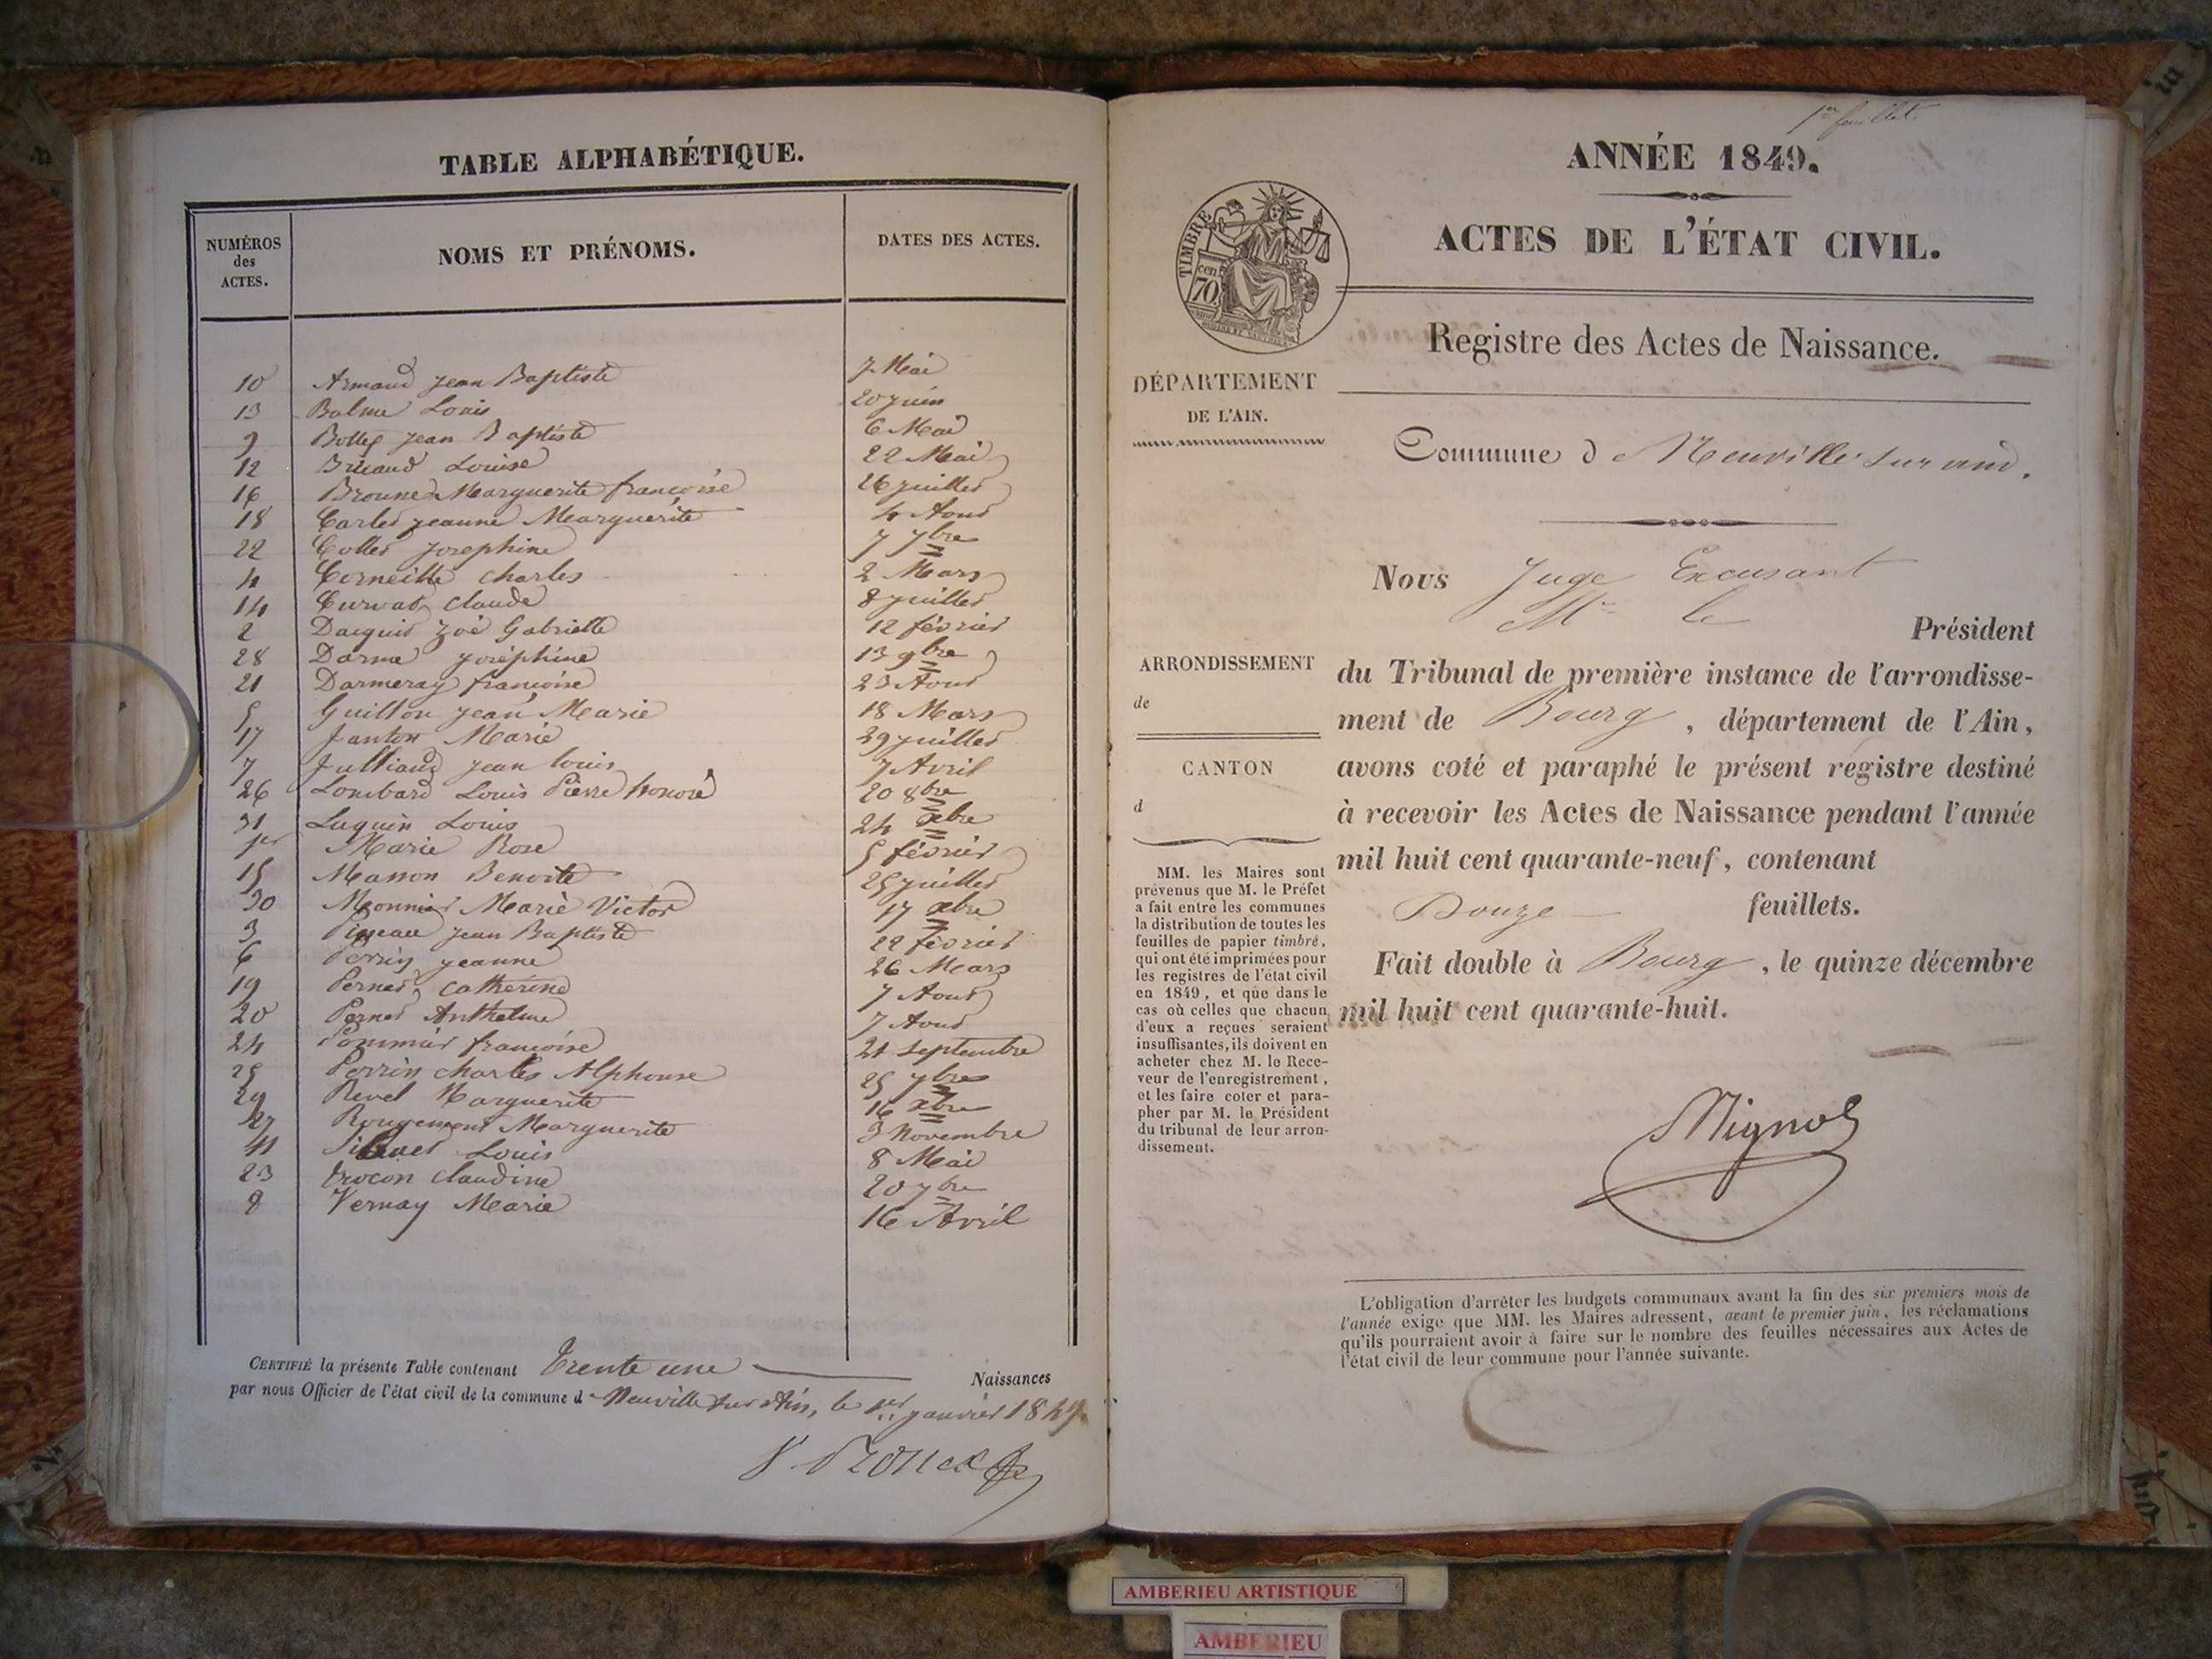 TABLE ALPHABÉTIQUE.
NUMÉROS des ACTES.
NOMS ET PRÉNOMS.
DATES DES ACTES.
10 Armand Jean Baptiste 7 Mai
13 Balme Louis 20 juin
9 Jean Baptiste 6 Mai
12 Louise 22 Mai
16 Marguerite françoise 26 juillet
18 jeanne Marguerite 4 Aout
22 Collet Josephine 7 7bre
4 Corneille Charles 2 Mars
14 Curvat Claude 8 juillet
2 Zoé Gabrielle 12 février
28 Darme Joséphine 13 9bre
21 Darmeray françoise 23 Aout
5 Guillon jean Marie 18 Mars
17 Janton Marie 29 juillet
7 Julliand jean louis 7 Avril
26 Lombard Louis Pierre honoré 20 8bre
31 Luquin Louis 24 xbre
1er Marie Rose 5 février
15 Masson Benoite 25 juillet
30 Meonnier Marie Victor 17 xbre
3 jean Baptiste 22 février
6 Perrin jeanne 26 Mars
19 Pernet Catherine 7 Aout
20 Pernet Anthelme 7 Aout
24 Pommier françoise 21 septembre
25 Perrin Charles Alphonse 25 7bre
29 Revel Marguerite 16 xbre
27 Rougemont Marguerite 3 Novembre
11 Louis 8 Mai
23 trocon Claudine 20 7bre
8 Vernay Marie 16 Avril
CERTIFIÉ la présente Table contenant Trente une Naissances
par nous Officier de l'état civil de la commune d Neuville sur Ain, le 1er janvier 1849.
1er feuillet.
ANNÉE 1849.
ACTES DE L'ÉTAT CIVIL.
TIMBRE
cen 70
Registre des Actes de Naissance.
DÉPARTEMENT
DE L'AIN.
Commune de Neuville sur ain.
Nous Juge Excusant
Mr le
Président
ARRONDISSEMENT
de
du Tribunal de première instance de l'arrondisse-
ment de Bourg, département de l'Ain,
CANTON
d
avons coté et paraphé le présent registre destiné
à recevoir les Actes de Naissance pendant l'année
mil huit cent quarante-neuf, contenant
Douze feuillets.
Fait double à Bourg, le quinze décembre
mil huit cent quarante-huit.
MM. les Maires sont
prévenus que M. le Préfet
a fait entre les communes
la distribution de toutes les
feuilles de papier timbré,
qui ont été imprimées pour
les registres de l'état civil
en 1849, et que dans le
cas où celles que chacun
d'eux a reçues seraient
insuffisantes, ils doivent en
acheter chez M. le Rece-
veur de l'enregistrement,
et les faire coter et para-
pher par M. le Président
du tribunal de leur arron-
dissement.
Mignot
L'obligation d'arrêter les budgets communaux avant la fin des six premiers mois de
l'année exige que MM. les Maires adressent, avant le premier juin, les réclamations
qu'ils pourraient avoir à faire sur le nombre des feuilles nécessaires aux Actes de
l'état civil de leur commune pour l'année suivante.
AMBERIEU ARTISTIQUE
AMBERIEU